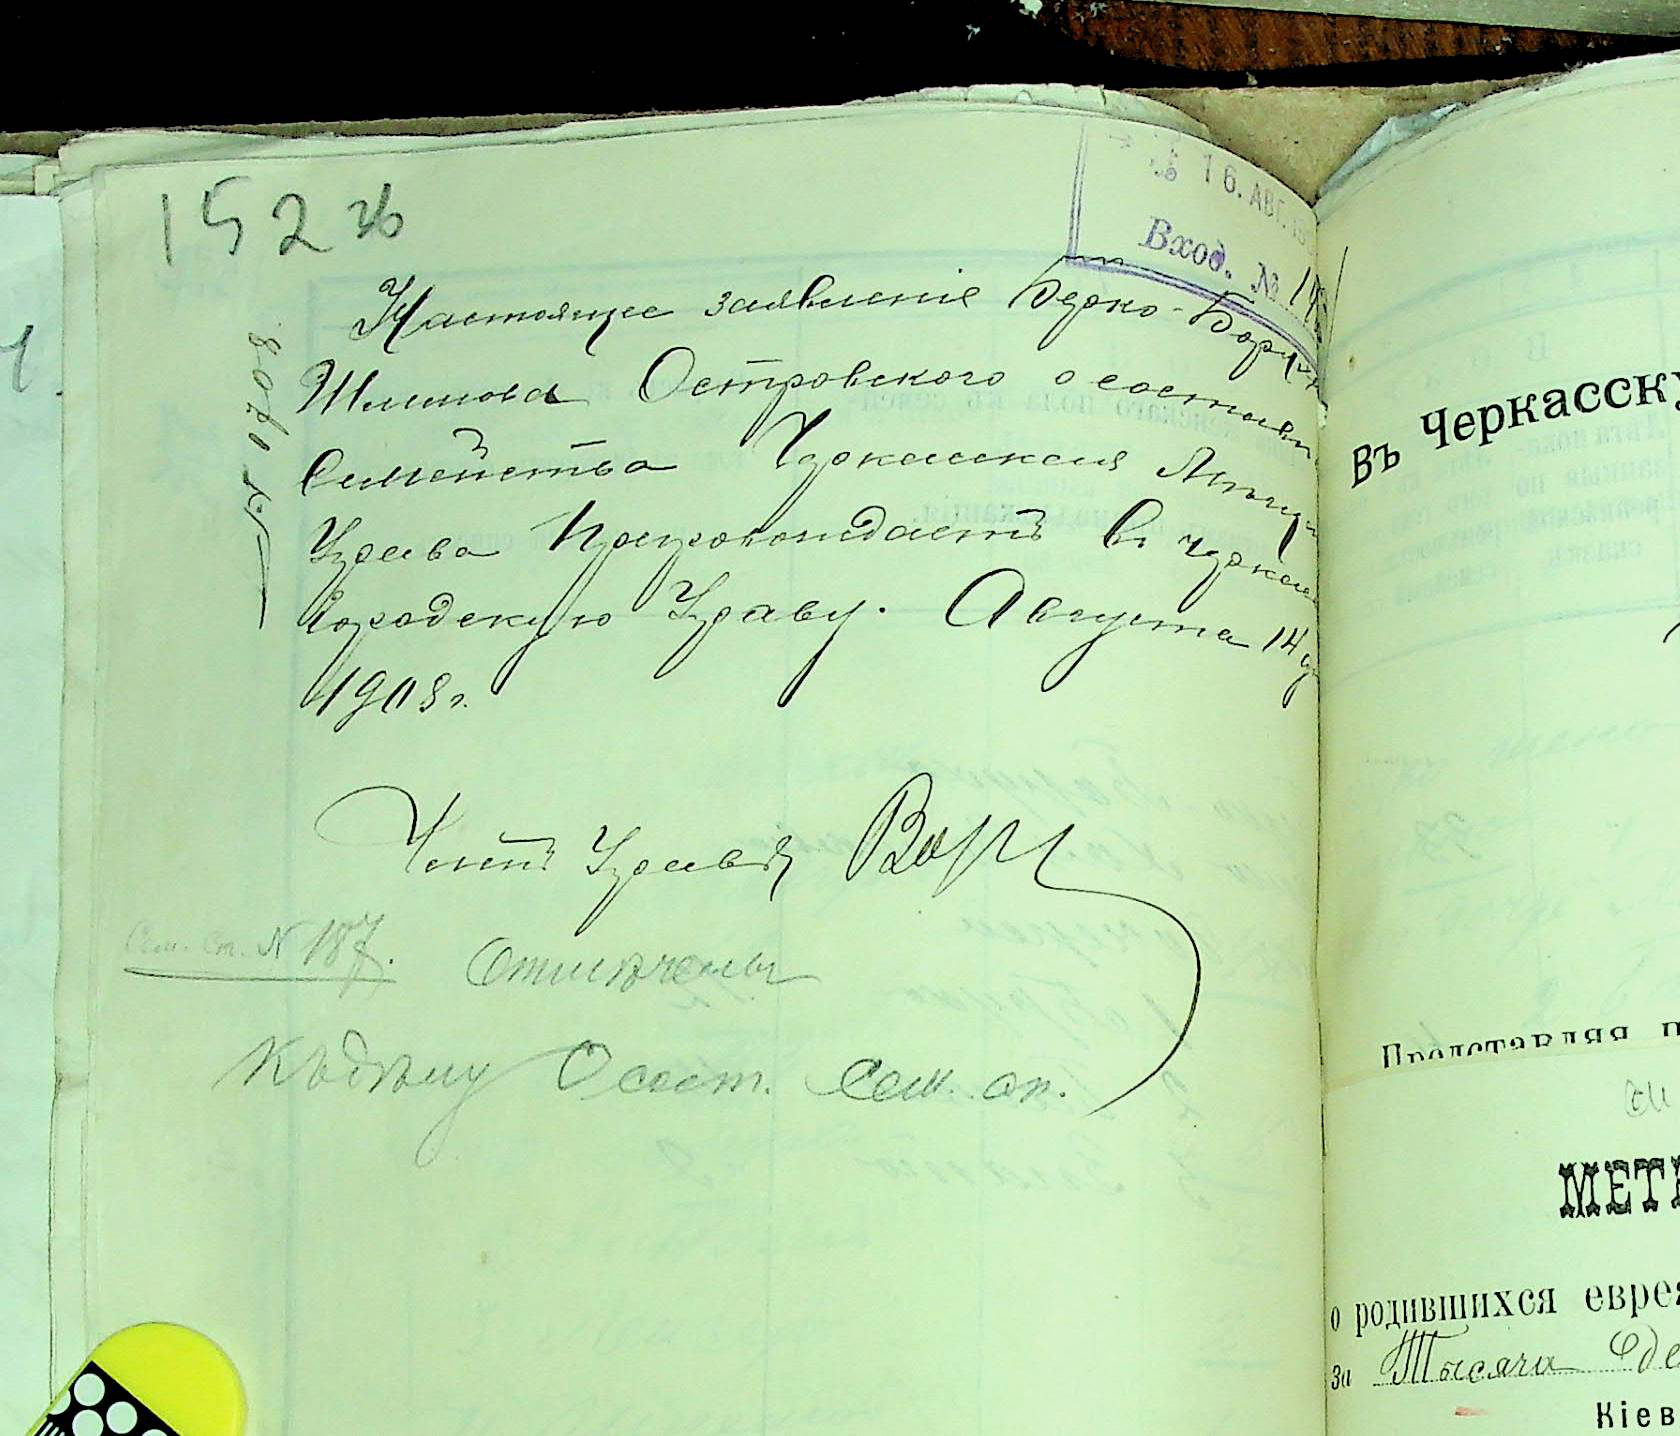 152 зв
16. АВГ. 19
Вход. №
Настоящее заявленіе Берко-Борух
Шлиомова Островского о составѣ
Семейства Черкасская Мѣщ
Управа препровождаетъ въ Черкас
Городскую Управу. Августа 14 дн
1908 г.
Членъ Управы
Сем. Сп. № 187.
Отмѣчены
Къ дѣлу О сост. Сем. сп.
Въ Черкасску
Представляя п
МЕТР
о родившихся еврея
за Тысяча Оде
Кіев